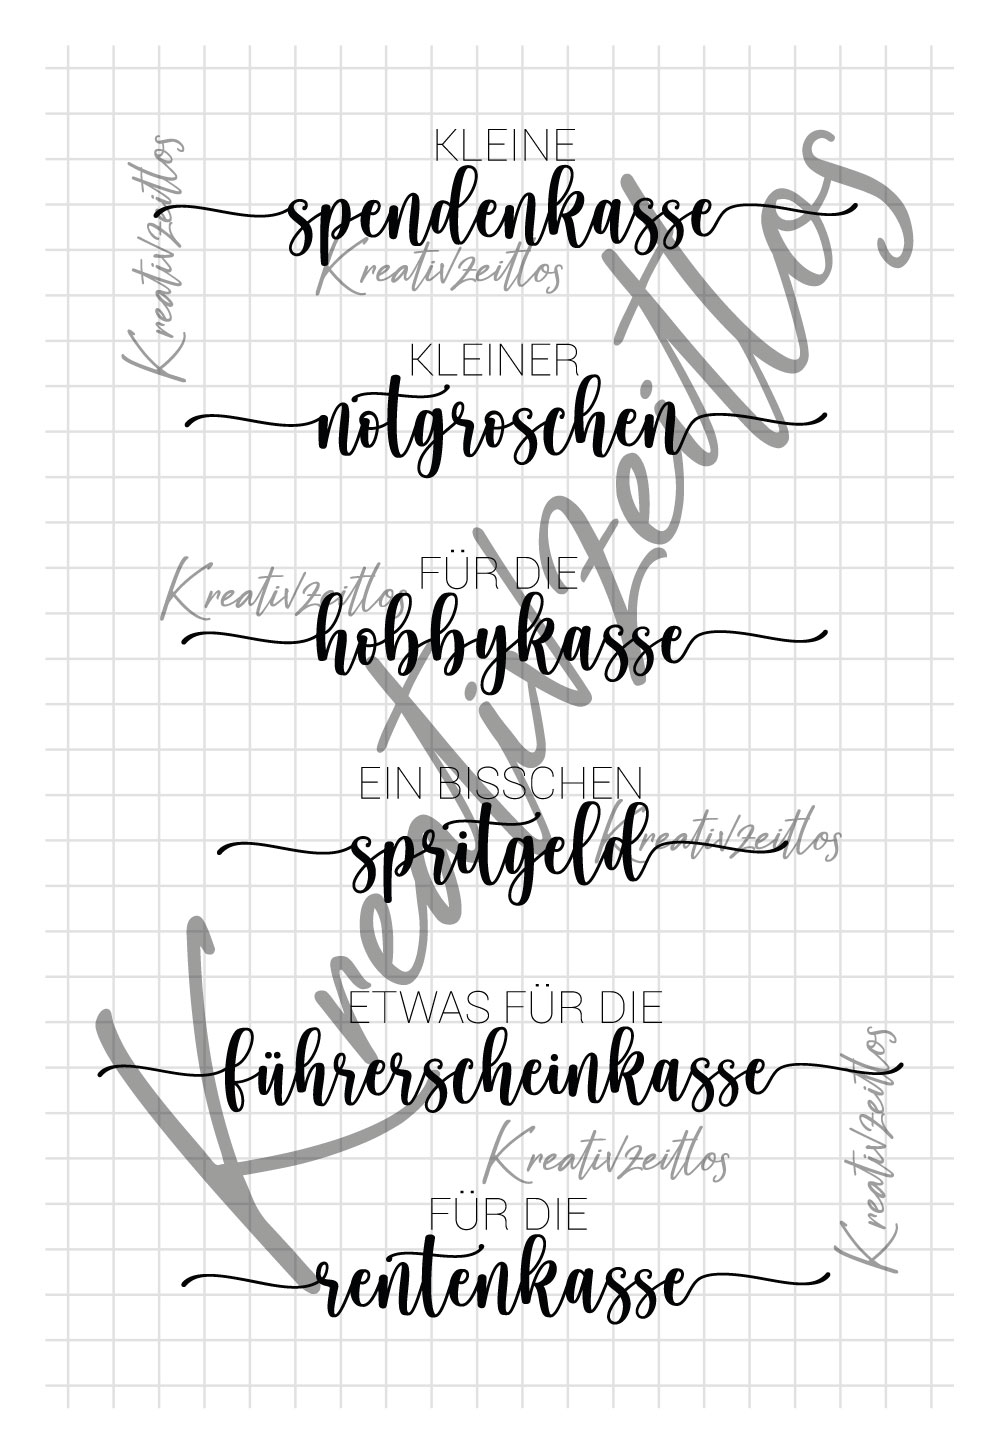 KLEINE
spendenkasse
Kreativzeitlos
Kreativzeitlos
KLEINER
notgroschen
Kreativzeitlos
FÜR DIE
Kreativzeitlos
hobbykasse
EIN BISSCHEN
spritgeld
Kreativzeitlos
ETWAS FÜR DIE
führerscheinkasse
Kreativzeitlos
Kreativzeitlos
FÜR DIE
rentenkasse